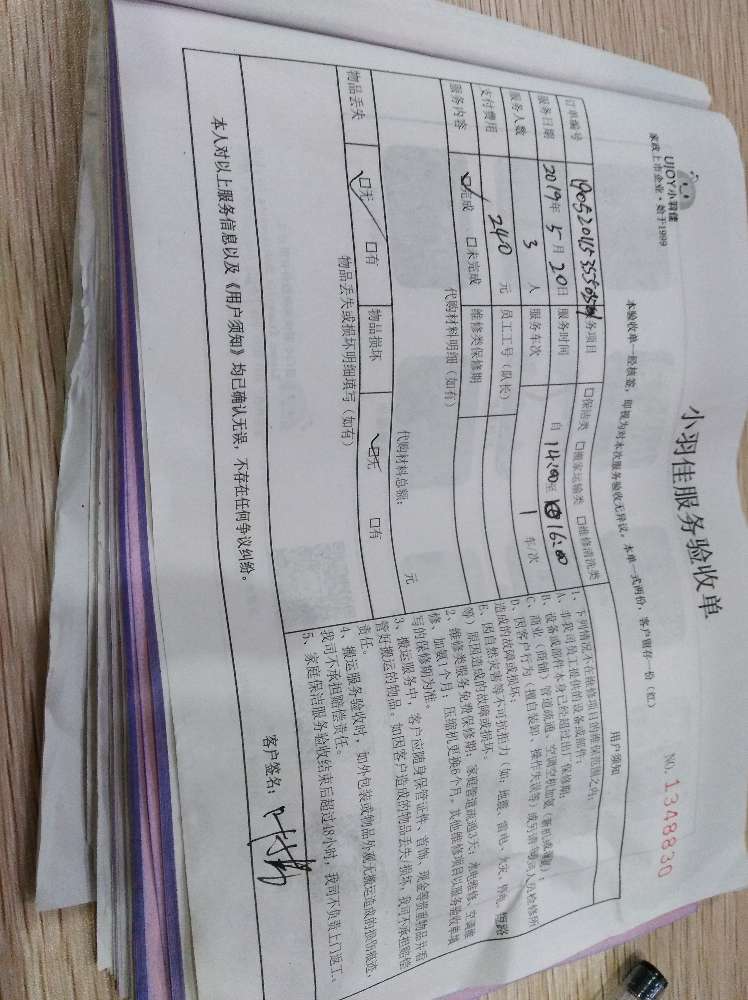 UJOY小羽佳
家政上市企业·始于1999
小羽佳服务验收单
NO. 1348830
本验收单一经核签，即视为对本次服务验收无异议。本单一式两份，客户留存一份（红）
订单编号
务项目 口保洁类 口搬家运输类 口维修清洗类
服务日期 2019年 5月 20日 服务时间 自 14:00至 16:00
服务人数 3 人 服务车次 1 车/次
支付费用 240 元 员工工号（队长）
服务内容 口完成 口未完成 维修类保修期
代购材料明细（如有）
代购材料总额： 元
物品丢失 口无 口有 物品损坏 口无 口有
物品丢失或损坏明细填写（如有）
用户须知
1、下列情况不在维修项目的维保范围之内：
A、非我司员工提供的设备或部件；
B、设备或部件本身已经超过出厂保修期；
C、商业（商铺）管道疏通、空调空机加氟（新机或移机）；
D、因客户行为（擅自装卸、操作失误等）或另请 人员检修所
造成的故障或损坏；
6、因自然灾害等不可抗拒力（如：地震、雷电、火灾、停电、短路
等）原因造成的故障或损坏。
2、维修类服务免费保修期：家庭管道疏通3天；水电维修、空调维
修、加氟1个月；压缩机更换6个月，其他维修项目以服务验收单填
写的保修期为准。
3、搬运服务中，客户应随身保管证件、首饰、现金等贵重物品并看
管好搬运的物品，如因客户造成的物品丢失/损坏，我司不承担赔偿
责任。
4、搬运服务验收时，如外包装或物品外观无搬运造成的损伤痕迹，
我司不承担赔偿责任。
5、家庭保洁服务验收结束后超过48小时，我司不负责上门返工。
本人对以上服务信息以及《用户须知》均已确认无误，不存在任何争议纠纷。
客户签名：